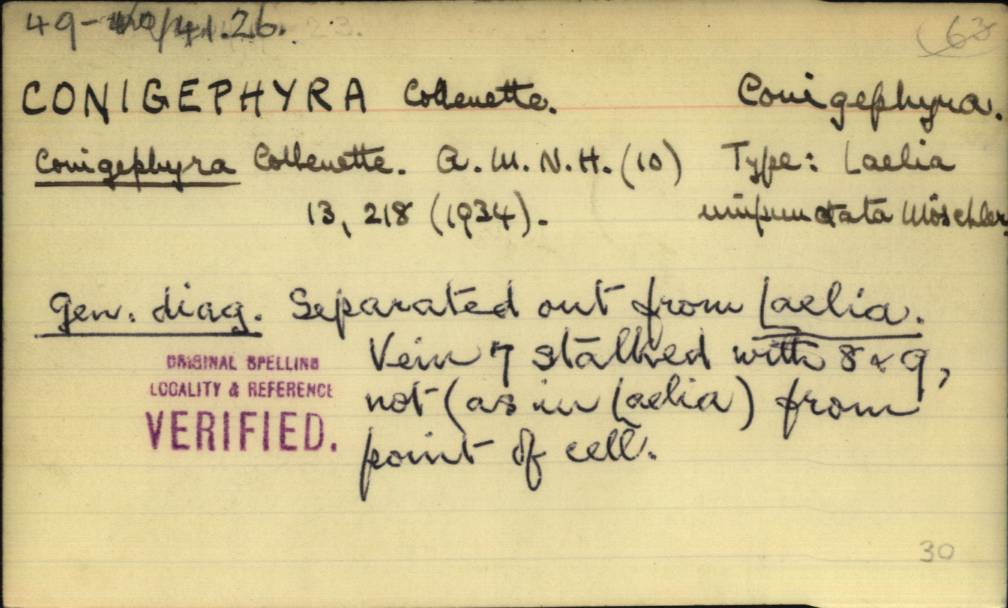 49-41.26.
63
CONIGEPHYRA Collenette. Conigephyra.
Conigephyra Collenette. A.M.N.H. (10) Type: Laelia
13, 218 (1934). unipunctata Möschler.
Gen. diag. Separated out from Laelia.
Vein 7 stalked with 8 & 9,
not (as in Laelia) from
point of cell.
ORIGINAL SPELLING
LOCALITY & REFERENCE
VERIFIED.
30